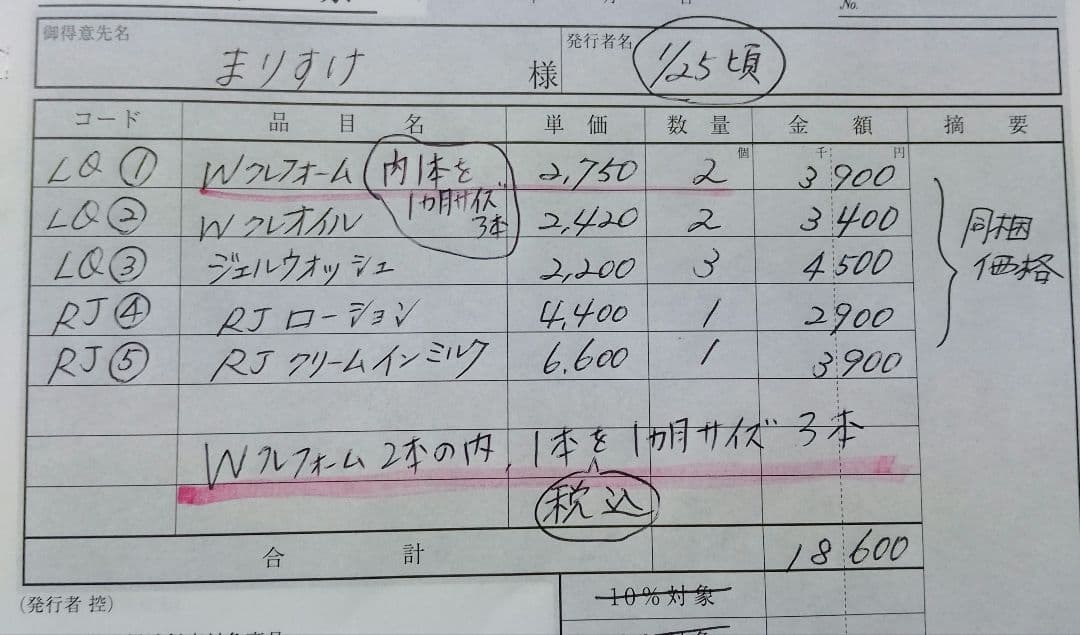 No.
御得意先名
まりすけ 様
発行者名
1/25頃
コード 品目名 単価 数量 金額 摘要
個 千 円
LQ ① Wクレフォーム 内1本を 2,750 2 3 900
1カ月サイズ
3本
LQ ② Wクレオイル 2,420 2 3 400
LQ ③ ジェルウオッシュ 2,200 3 4 500
RJ ④ RJ ローション 4,400 1 2 900
RJ ⑤ RJ クリームインミルク 6.600 1 3 900
同梱
価格
Wクレフォーム 2本の内、1本を1カ月サイズ 3本
税込
合計 18 600
(発行者 控)
10%対象